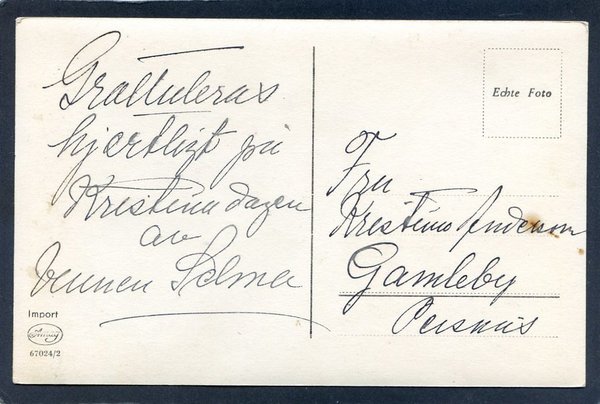 Gratuleras
hjärtligt på
Kristina dagen
av
vännen Selma
Import
67024/2
Echte Foto
Fru
Kristina Anderson
Gamleby